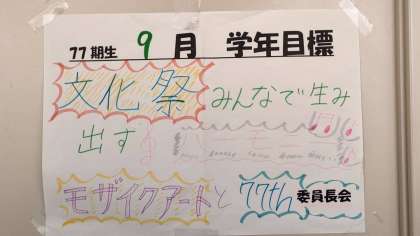 77期生 9月 学年目標
文化祭 みんなで生み
出す ハーモニー
モザイクアートと 77th 委員長会